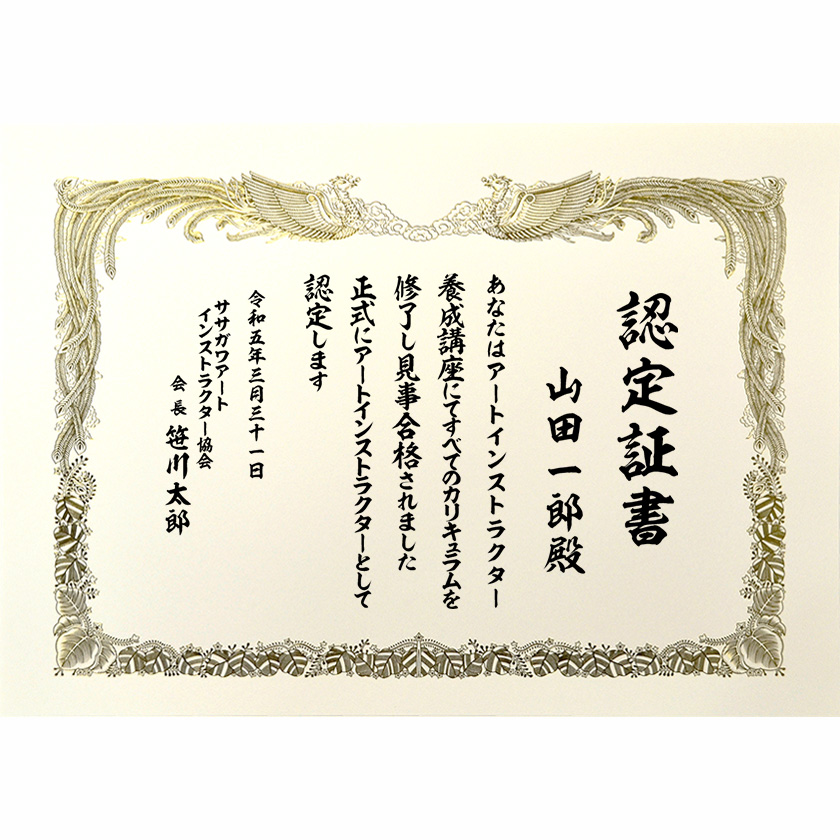 認定証書
山田一郎殿
あなたはアートインストラクター
養成講座にてすべてのカリキュラムを
修了し見事合格されました
正式にアートインストラクターとして
認定します
令和五年三月三十一日
ササガワアート
インストラクター協会
会長 笹川太郎